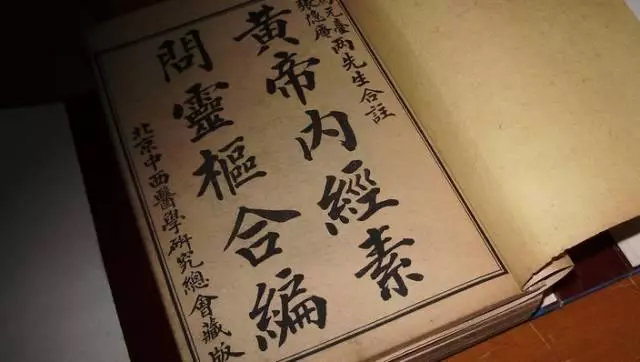 元臺
張隱庵兩先生合註
黃帝内經素
問靈樞合編
北京中西醫學研究總會藏版